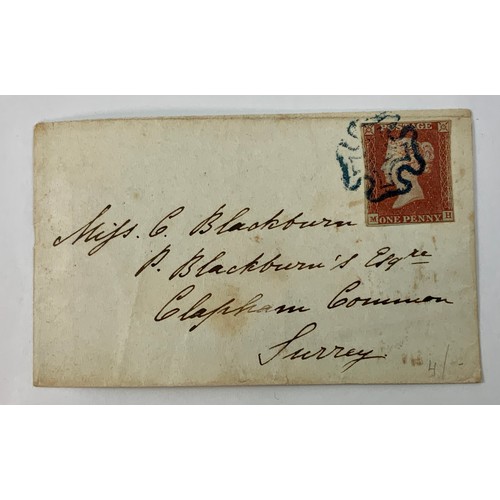 POSTAGE
M H
ONE PENNY
Miss. C. Blackburn
P. Blackburn's Esqre
Clapham Common
Surrey.
4/-